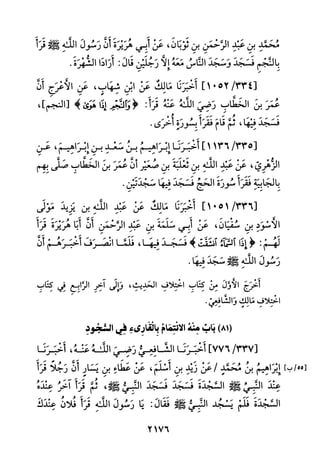 مُحَمَّدِ بنِ عَبْدِ الرَّحْمَنِ بنِ ثَوْبَانَ، عَنْ أَبِي هُرَيْرَةَ أَنَّ رَسُولَ اللهِ ﷺ قَرَأَ
بِالنَّجْمِ فَسَجَدَ وَسَجَدَ النَّاسُ مَعَهُ إِلاَّ رَجُلَيْنِ قَالَ: أَرَادَا الشُّهْرَةَ.
[١٠٥٢/٣٣٤] أَخْبَرَنَا مَالِكٌ عَنْ ابْنِ شِهَابٍ، عَنِ الأَعْرَجِ أَنَّ
عُمَرَ بنَ الخَطَّابِ رَضِيَ اللهُ عَنْهُ قَرَأَ: ﴿وَالنَّجْمِ إِذَا هَوَىٰ﴾ [النجم]،
فَسَجَدَ فِيْهَا، ثُمَّ قَامَ فَقَرَأَ بِسُورَةٍ أُخْرَى.
[١١٣٦/٣٣٥] أَخْبَرَنَا إِبْرَاهِيمُ بنُ سَعْدِ بنِ إِبْرَاهِيمَ، عَنِ
الزُّهْرِيِّ، عَنْ عَبْدِ اللهِ بنِ ثَعْلَبَةَ بنِ صُعَيْرٍ أَنَّ عُمَرَ بنَ الخَطَّابِ صَلَّى بِهِم
بِالجَابِيَةِ فَقَرَأَ سُورَةَ الحَجِّ فَسَجَدَ فِيهَا سَجْدَتَيْنِ.
[١٠٥١/٣٣٦] أَخْبَرَنَا مَالِكٌ عَنْ عَبْدِ اللهِ بنِ يَزِيدَ مَوْلَى
الأَسْوَدِ بنِ سُفْيَانَ، عَنْ أَبِي سَلَمَةَ بنِ عَبْدِ الرَّحْمَنِ أَنَّ أَبَا هُرَيْرَةَ قَرَأَ
لَهُمْ: ﴿إِذَا السَّمَاءُ انشَقَّتْ﴾ فَسَجَدَ فِيهَا، فَلَمَّا انْصَرَفَ أَخْبَرَهُمْ أَنَّ
رَسُولَ اللهِ ﷺ سَجَدَ فِيهَا.
أَخْرَجَ الأَوَّلَ مِنْ كِتَابِ اخْتِلافِ الحَدِيثِ، وَإِلَى آخِرِ الرَّابِعِ فِي كِتَابِ
اخْتِلافِ مَالِكٍ وَالشَّافِعِيِّ.
(٨١) بَابٌ مِنْهُ الائْتِمَامُ بِالْقَارِىءِ فِي السُّجُودِ
[٧٧٦/٣٣٧] أَخْبَرَنَا الشَّافِعِيُّ رَضِيَ اللهُ عَنْهُ، أَخْبَرَنَا
إِبْرَاهِيمُ بنُ مُحَمَّدٍ / عَنْ زَيْدِ بنِ أَسْلَمَ، عَنْ عَطَاءِ بنِ يَسَارٍ أَنَّ رَجُلاً قَرَأَ [٥٥/ب]
عِنْدَ النَّبِيِّ ﷺ السَّجْدَةَ فَسَجَدَ فَسَجَدَ النَّبِيُّ ﷺ، ثُمَّ قَرَأَ آخَرُ عِنْدَهُ
السَّجْدَةَ فَلَمْ يَسْجُدِ النَّبِيُّ ﷺ فَقَالَ: يَا رَسُولَ اللهِ قَرَأَ فُلانٌ عِنْدَكَ
٢١٧٦